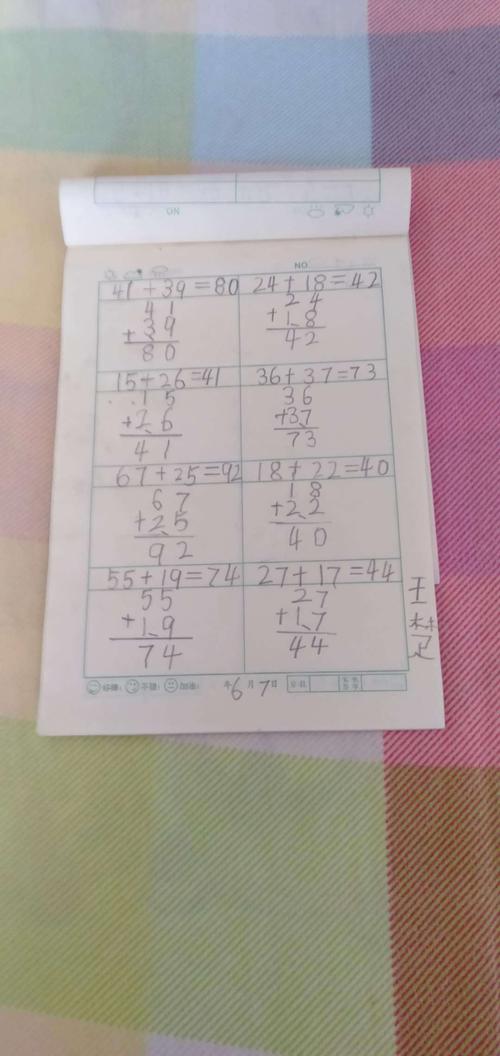 NO
NO
41+39=80 24+18=42
41
+39
80
24
+18
42
15+26=41 36+37=73
15
+26
41
36
+37
73
67+25=92 18+22=40
67
+25
92
18
+22
40
55+19=74 27+17=44
55
+19
74
27
+17
44
王
年6月7日